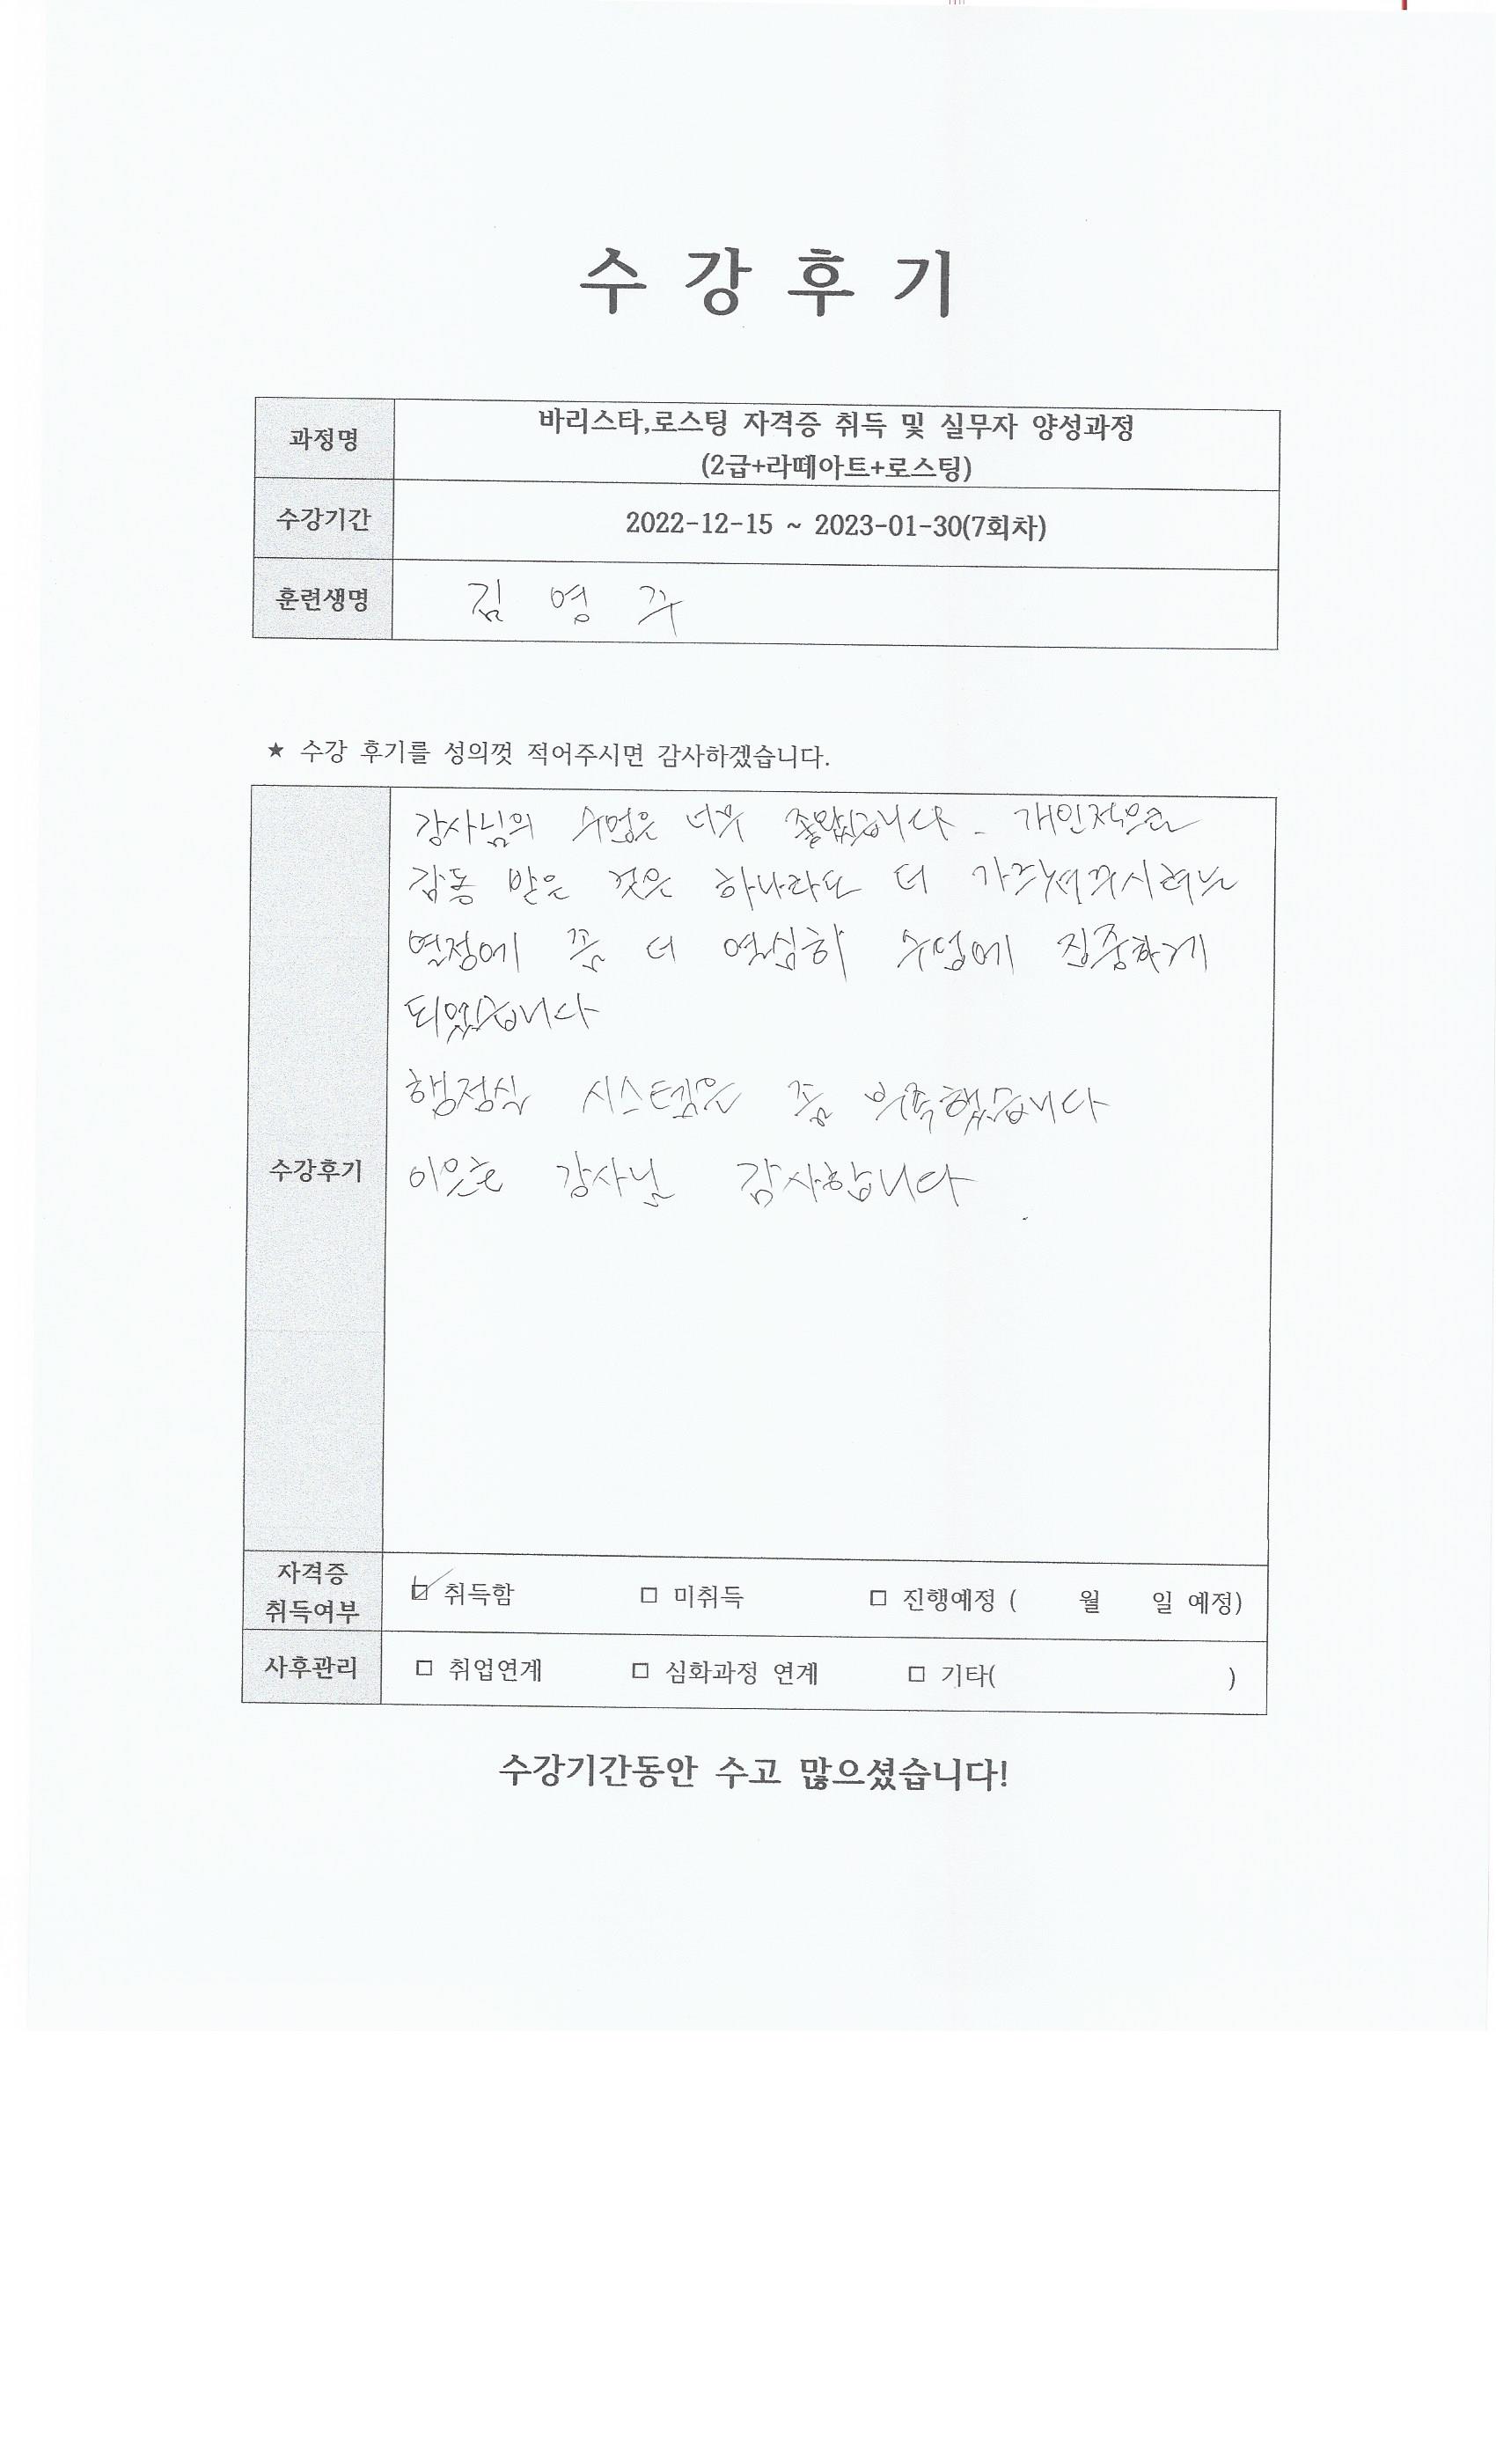 수 강 후 기
과정명
바리스타,로스팅 자격증 취득 및 실무자 양성과정
(2급+라떼아트+로스팅)
수강기간
2022-12-15 ~ 2023-01-30(7회차)
훈련생명
김 영 주
★ 수강 후기를 성의껏 적어주시면 감사하겠습니다.
수강후기
강사님의 수업은 너무 좋았습니다. 개인적으로
감동 받은 것은 하나라도 더 가르쳐주시려는
열정에 좀 더 열심히 수업에 집중하게
되었습니다
행정실 시스템은 좀 부족했습니다
이은호 강사님 감사합니다
자격증
취득여부
☑ 취득함 □ 미취득 □ 진행예정 ( 월 일 예정)
사후관리
□ 취업연계 □ 심화과정 연계 □ 기타( )
수강기간동안 수고 많으셨습니다!